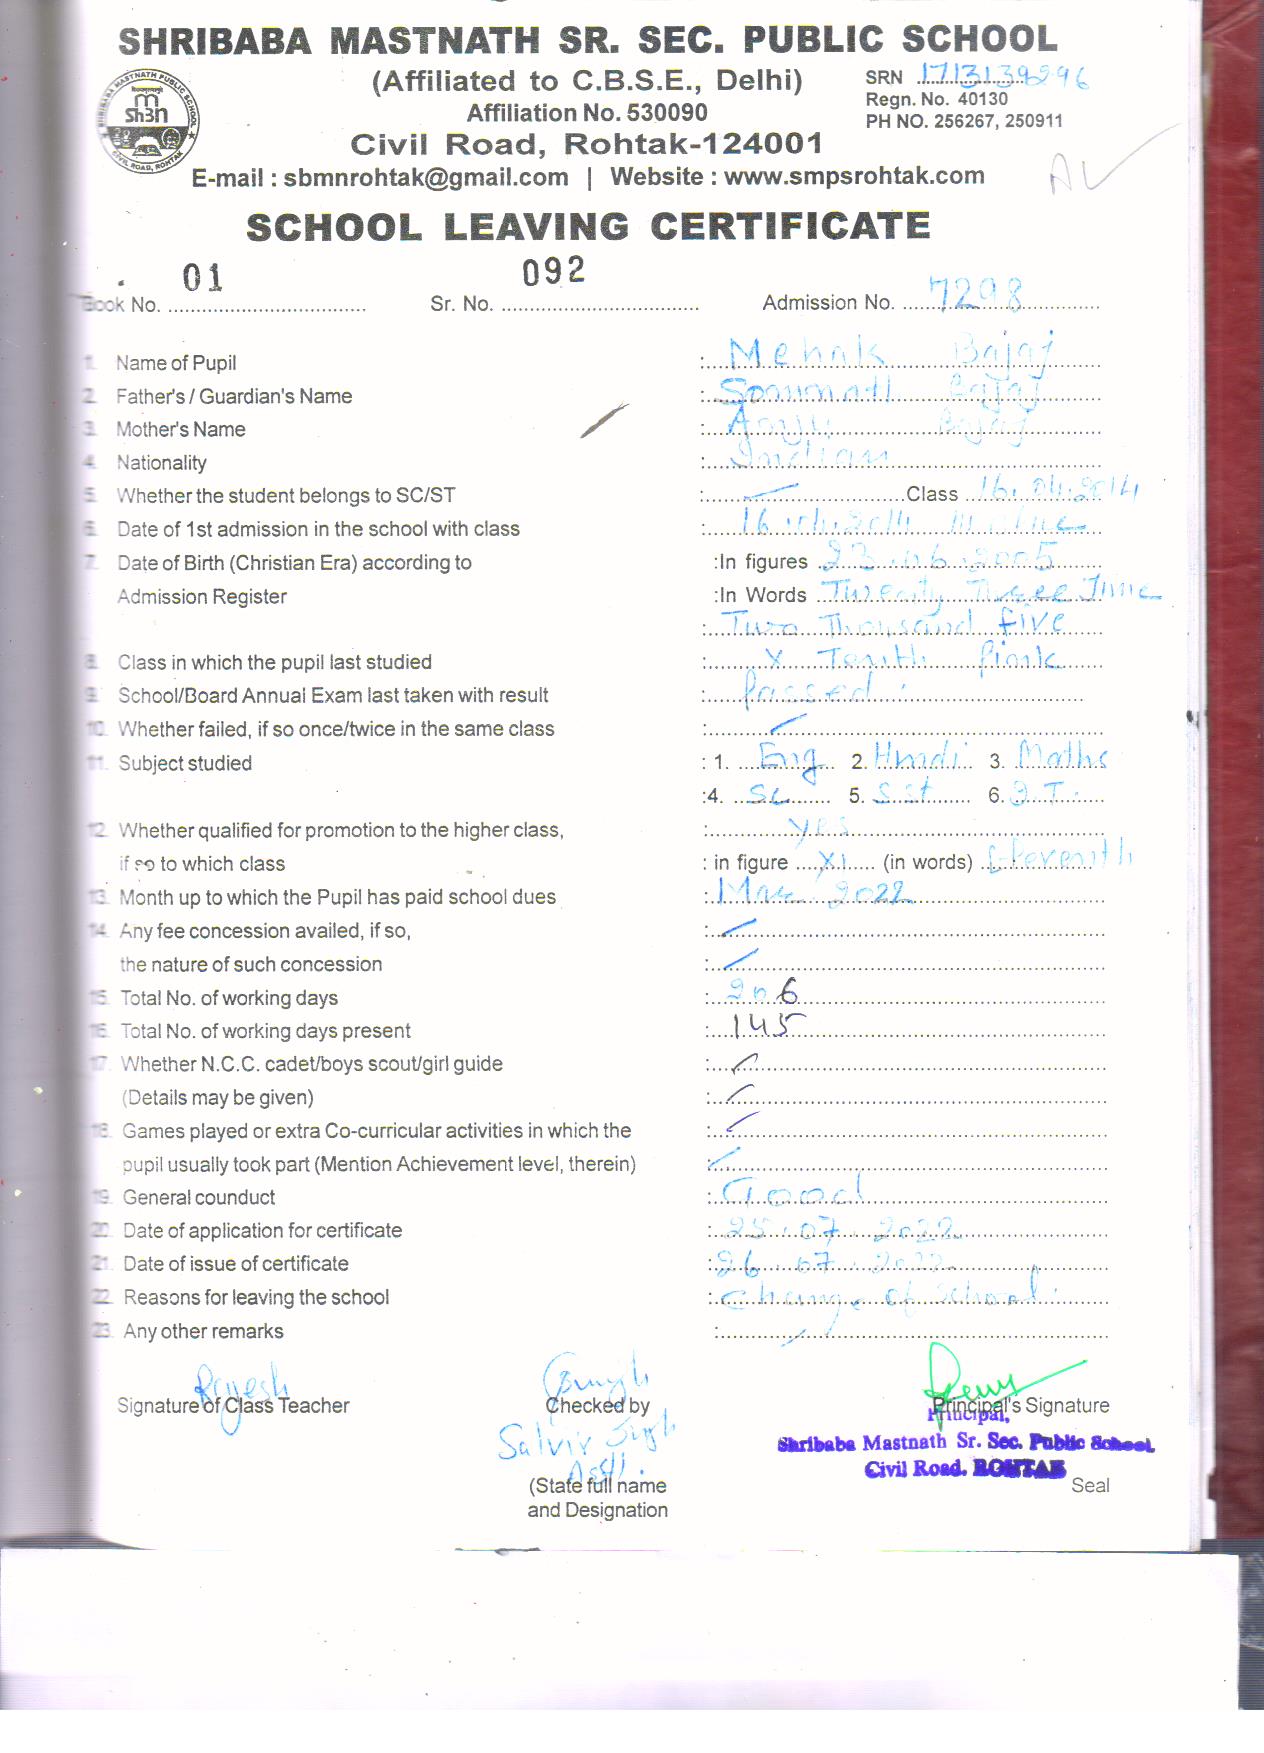 SHRIBABA MASTNATH SR. SEC. PUBLIC SCHOOL
(Affiliated to C.B.S.E., Delhi)
SRN 1713139296
Affiliation No. 530090
Regn. No. 40130
PH NO. 256267, 250911
Civil Road, Rohtak-124001
E-mail : sbmnrohtak@gmail.com | Website : www.smpsrohtak.com
SCHOOL LEAVING CERTIFICATE
Book No. 01 Sr. No. 092 Admission No. 7298
1. Name of Pupil : Mehak Bajaj
2. Father's / Guardian's Name : Bajaj
3. Mother's Name : Bajaj
4. Nationality : Indian
5. Whether the student belongs to SC/ST : Class 16.04.2014
6. Date of 1st admission in the school with class :
7. Date of Birth (Christian Era) according to :In figures 23.06.2005
Admission Register :In Words Twenty Three June
: Two Thousand five
8. Class in which the pupil last studied : X Tenth Pink
9. School/Board Annual Exam last taken with result : Passed
10. Whether failed, if so once/twice in the same class :
11. Subject studied : 1. Eng 2. Hindi 3. Maths
:4. Sc 5. S.St 6. I.T.
12. Whether qualified for promotion to the higher class, : yes
if so to which class : in figure XI (in words) Eleventh
13. Month up to which the Pupil has paid school dues : Mar. 2022
14. Any fee concession availed, if so, :
the nature of such concession :
15. Total No. of working days : 206
16. Total No. of working days present : 145
17. Whether N.C.C. cadet/boys scout/girl guide :
(Details may be given) :
18. Games played or extra Co-curricular activities in which the :
pupil usually took part (Mention Achievement level, therein) :
19. General counduct : Good
20. Date of application for certificate : 25.07.2022
21. Date of issue of certificate : 26.07.2022
22. Reasons for leaving the school : Change of School.
23. Any other remarks :
Rajesh
Signature of Class Teacher Checked by Principal's Signature
Principal,
Shribaba Mastnath Sr. Sec. Public School
Civil Road, ROHTAK
(State full name Seal
and Designation